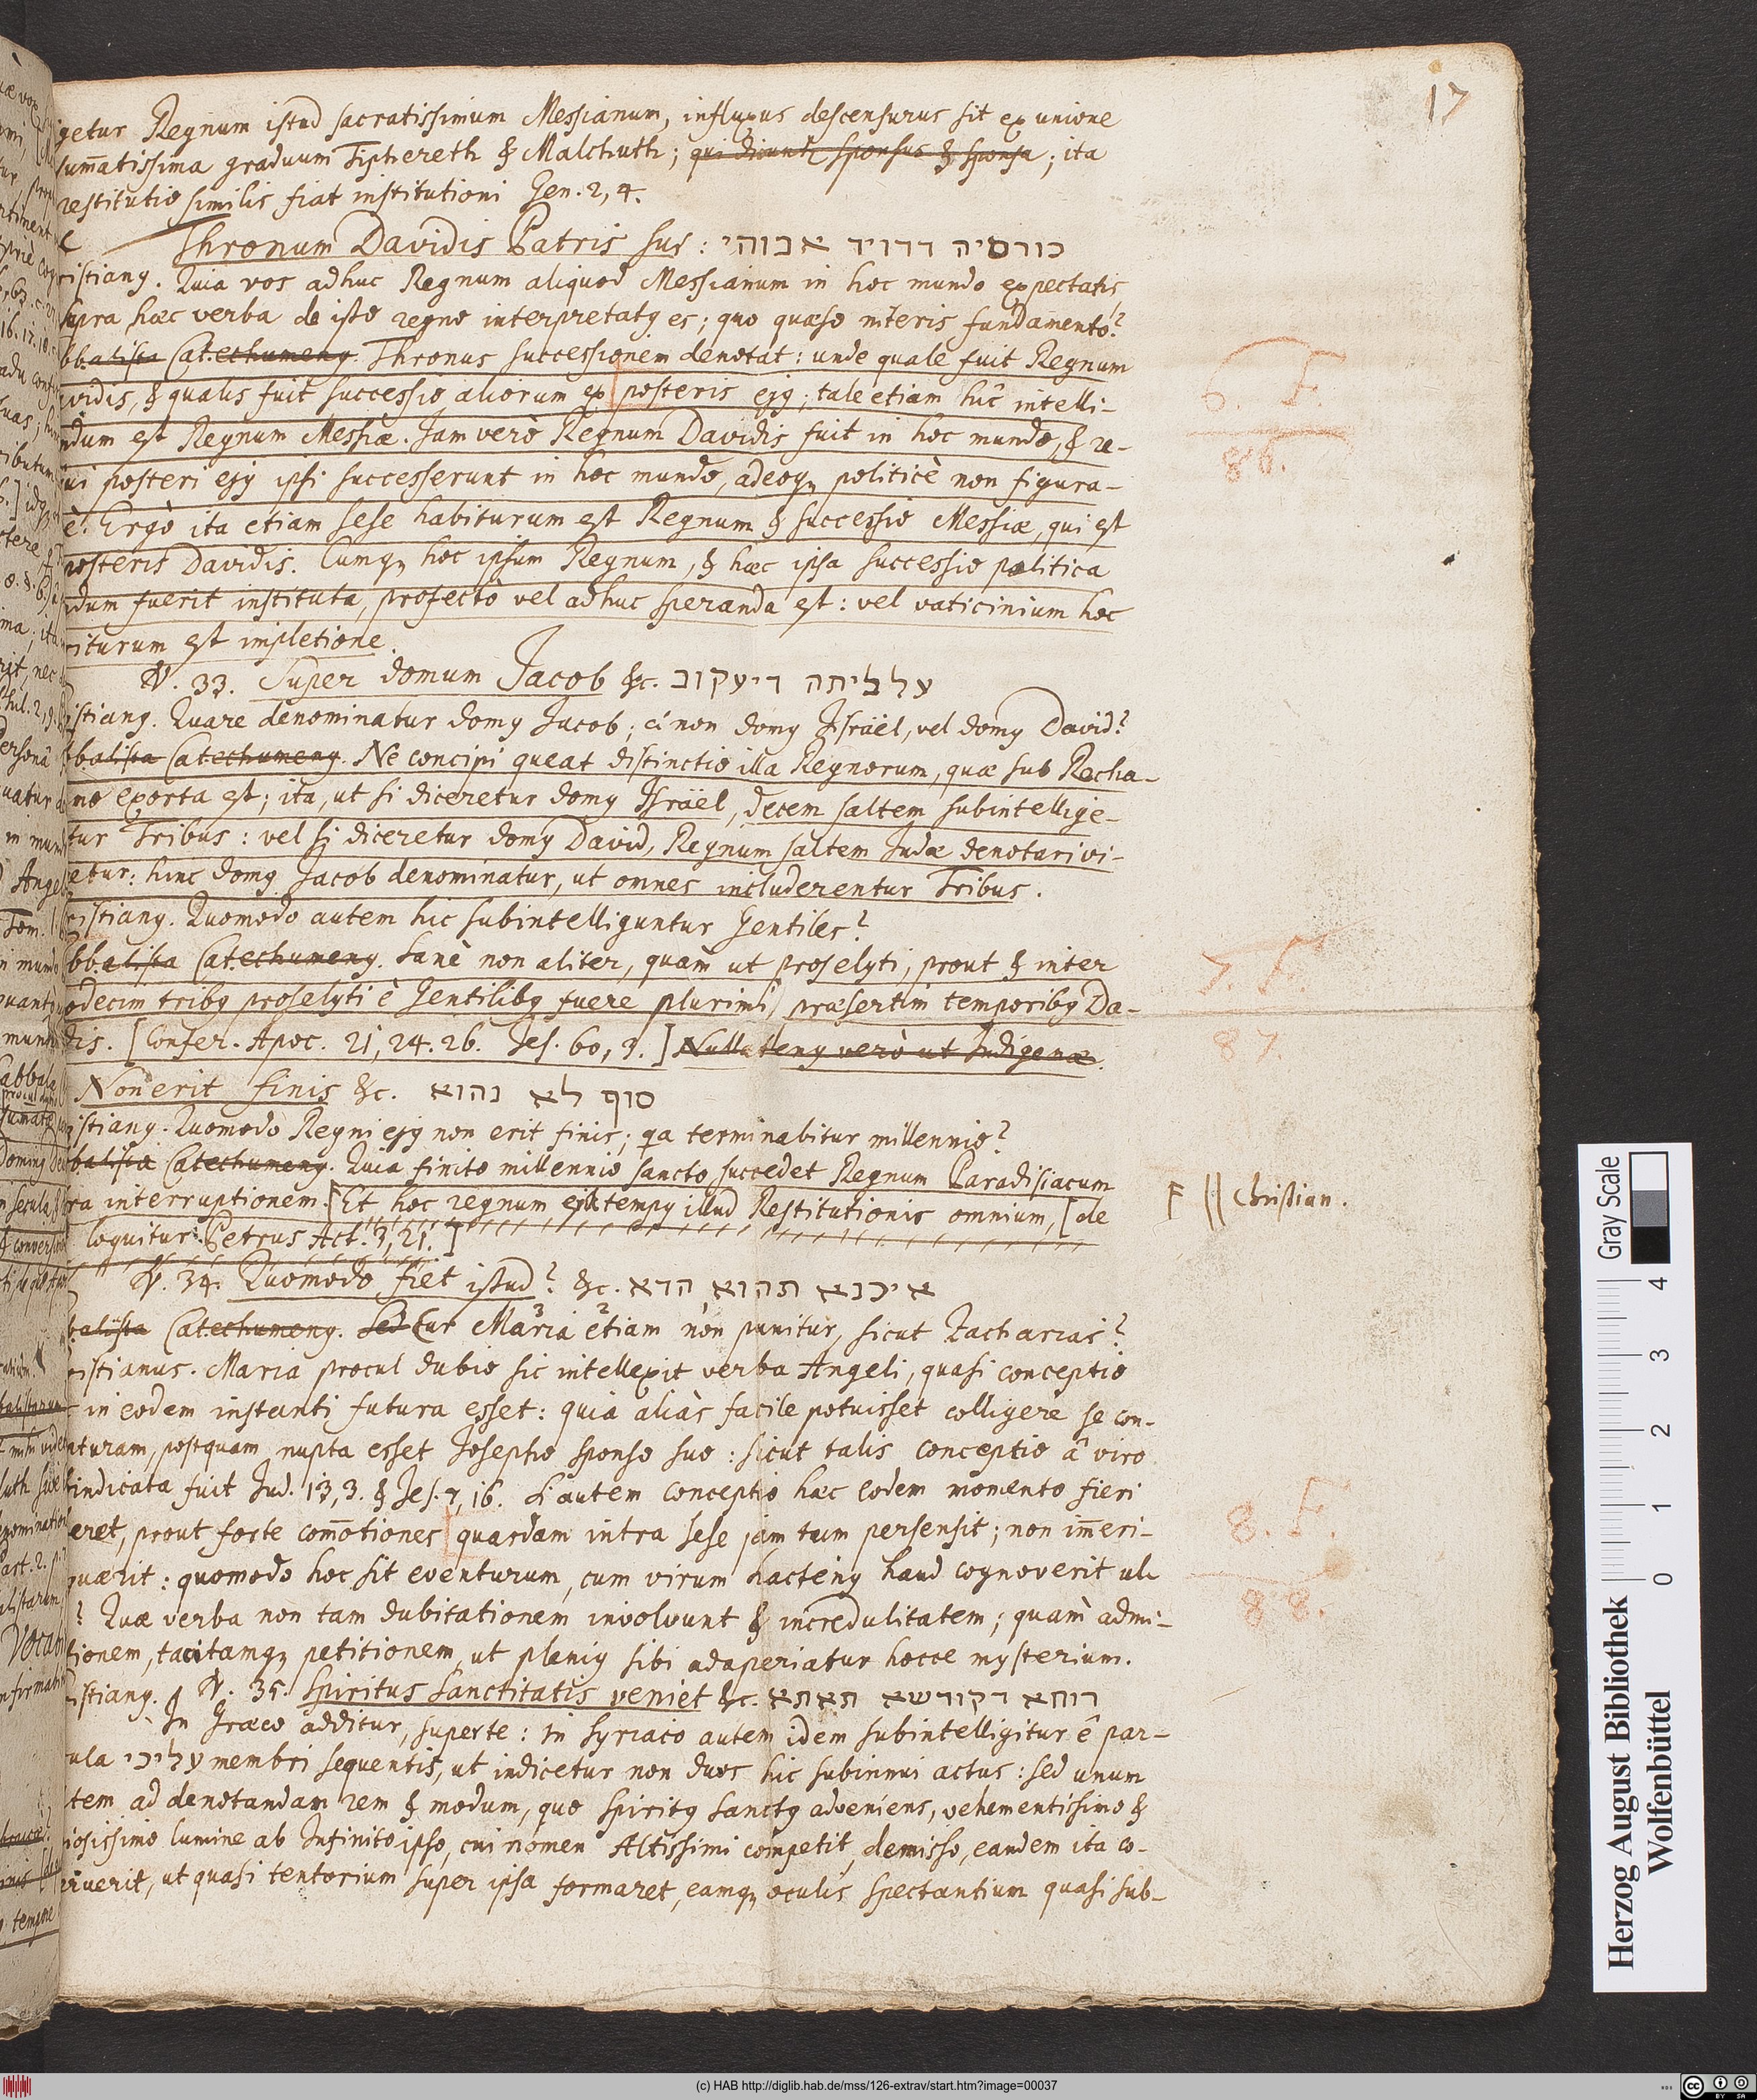 17
getur Regnum istud sacratissimum Messianum, influxus descensurus sit ex unione
sum̄atissima graduum Tiphereth & Malchuth; qui dicuntr sponsus & sponsa; ita
restitutio similis fiat institutioni Gen. 2, 4.
Thronum Davidis Patris sui: כורסיה דדויד אבוהי
ristianq. Quia vos adhuc Regnum aliquod Messianum in hoc mundo expectatis
supra hæc verba de isto regno interpretatq es; quo quæso niteris fundamento?
bbalista Catechumenq. Thronus successionem denotat: unde quale fuit Regnum
vidis, & qualis fuit successio aliorum ex posteris ejq; tale etiam hîc intelli-
ndum est Regnum Messiæ. Jam verò Regnum Davidis fuit in hoc mundo, & re-
ui posteri ejq ipsi successerunt in hoc mundo, adeoq politicè non figura-
è. Ergò ita etiam sese habiturum est Regnum & successio Messiæ, qui est
posteris Davidis. Cumq hoc ipsum Regnum, & hæc ipsa successio politica
ndum fuerit instituta, profectò vel adhuc speranda est: vel vaticinium hoc
riturum est impletione.
V. 33. Super domum Jacob &c. על ביתה דיעקוב
istianq. Quare denominatur domq Jacob; & non domq Israël, vel domq David?
bbalista Catechumenq. Ne concipi queat distinctio illa Regnorum, quæ sub Recha-
mo exorta est; ita, ut si diceretur domq Israël, decem saltem subintellige-
tur Tribus: vel si diceretur domq David, Regnum saltem Judæ denotari vi-
etur: hinc domq Jacob denominatur, ut omnes includerentur Tribus.
ristianq. Quomodo autem hic subintelliguntur Gentiles?
bbalista Catechumenq. Sanè non aliter, quàm ut proselyti, prout & inter
odecim tribq proselyti è Gentilibq fuere plurimi, præsertim temporibq Da-
dis. [Confer. Apoc. 21, 24. 26. Jes. 60, 3.] Nullatenq verò ut Indigenæ.
Non erit finis &c. סוף לא נהוא
istianq. Quomodo Regni ejq non erit finis; qa terminabitur millennio?
balista Catechumenq. Quia finito millennio sancto, succedet Regnum Paradisiacum
ra interruptionem. [Et hoc regnum erit tempq illud Restitutionis omnium, [de
loquitur Petrus Act. 3, 21.]
F || Christian.
V. 34. Quomodo fiet istud? &c. איכנא תהוא הדא
balista Catechumenq. Sed Cur Maria 3 etiam 2 non punitur, sicut Zacharias?
ristianus. Maria procul dubio sic intellexit verba Angeli, quasi conceptio
in eodem instanti futura esset: quia aliàs facile potuisset colligere se con-
pturam, postquam nupta esset Josepho sponso suo: sicut talis conceptio â viro
indicata fuit Jud. 13, 3. & Jes. 7, 16. Si autem conceptio hæc eodem momento fieri
eret, prout forte com̄otiones quasdam intra sese jam tum persensit; non im̄eri-
quærit: quomodo hoc sit eventurum, cum virum hactenq haud cognoverit ul-
? Quæ verba non tam dubitationem involvunt & incredulitatem; quàm admi-
tionem, tacitamq petitionem, ut pleniq sibi adaperiatur hocce mysterium.
istianq. V. 35. Spiritus Sanctitatis veniet &c. רוחא דקודשא תאתא
In Græco additur, super te: in Syriaco autem idem subintelligitur ê par-
ula עליכי membri sequentis, ut indicetur non duos hic subinnui actus: sed unum
tem ad denotandam rem & modum, quo Spiritq Sanctq adveniens, vehementissimo &
iosissimo lumine ab Infinito ipso, cui nomen Altissimi competit, demisso, eandem ita co-
ruerit, ut quasi tentorium super ipsa formaret, eamq oculis spectantium quasi sub-
6. F.
86.
7. F.
87.
8. F.
88.
Herzog August Bibliothek
Wolfenbüttel
Gray Scale
0 1 2 3 4
(c) HAB http://diglib.hab.de/mss/126-extrav/start.htm?image=00037